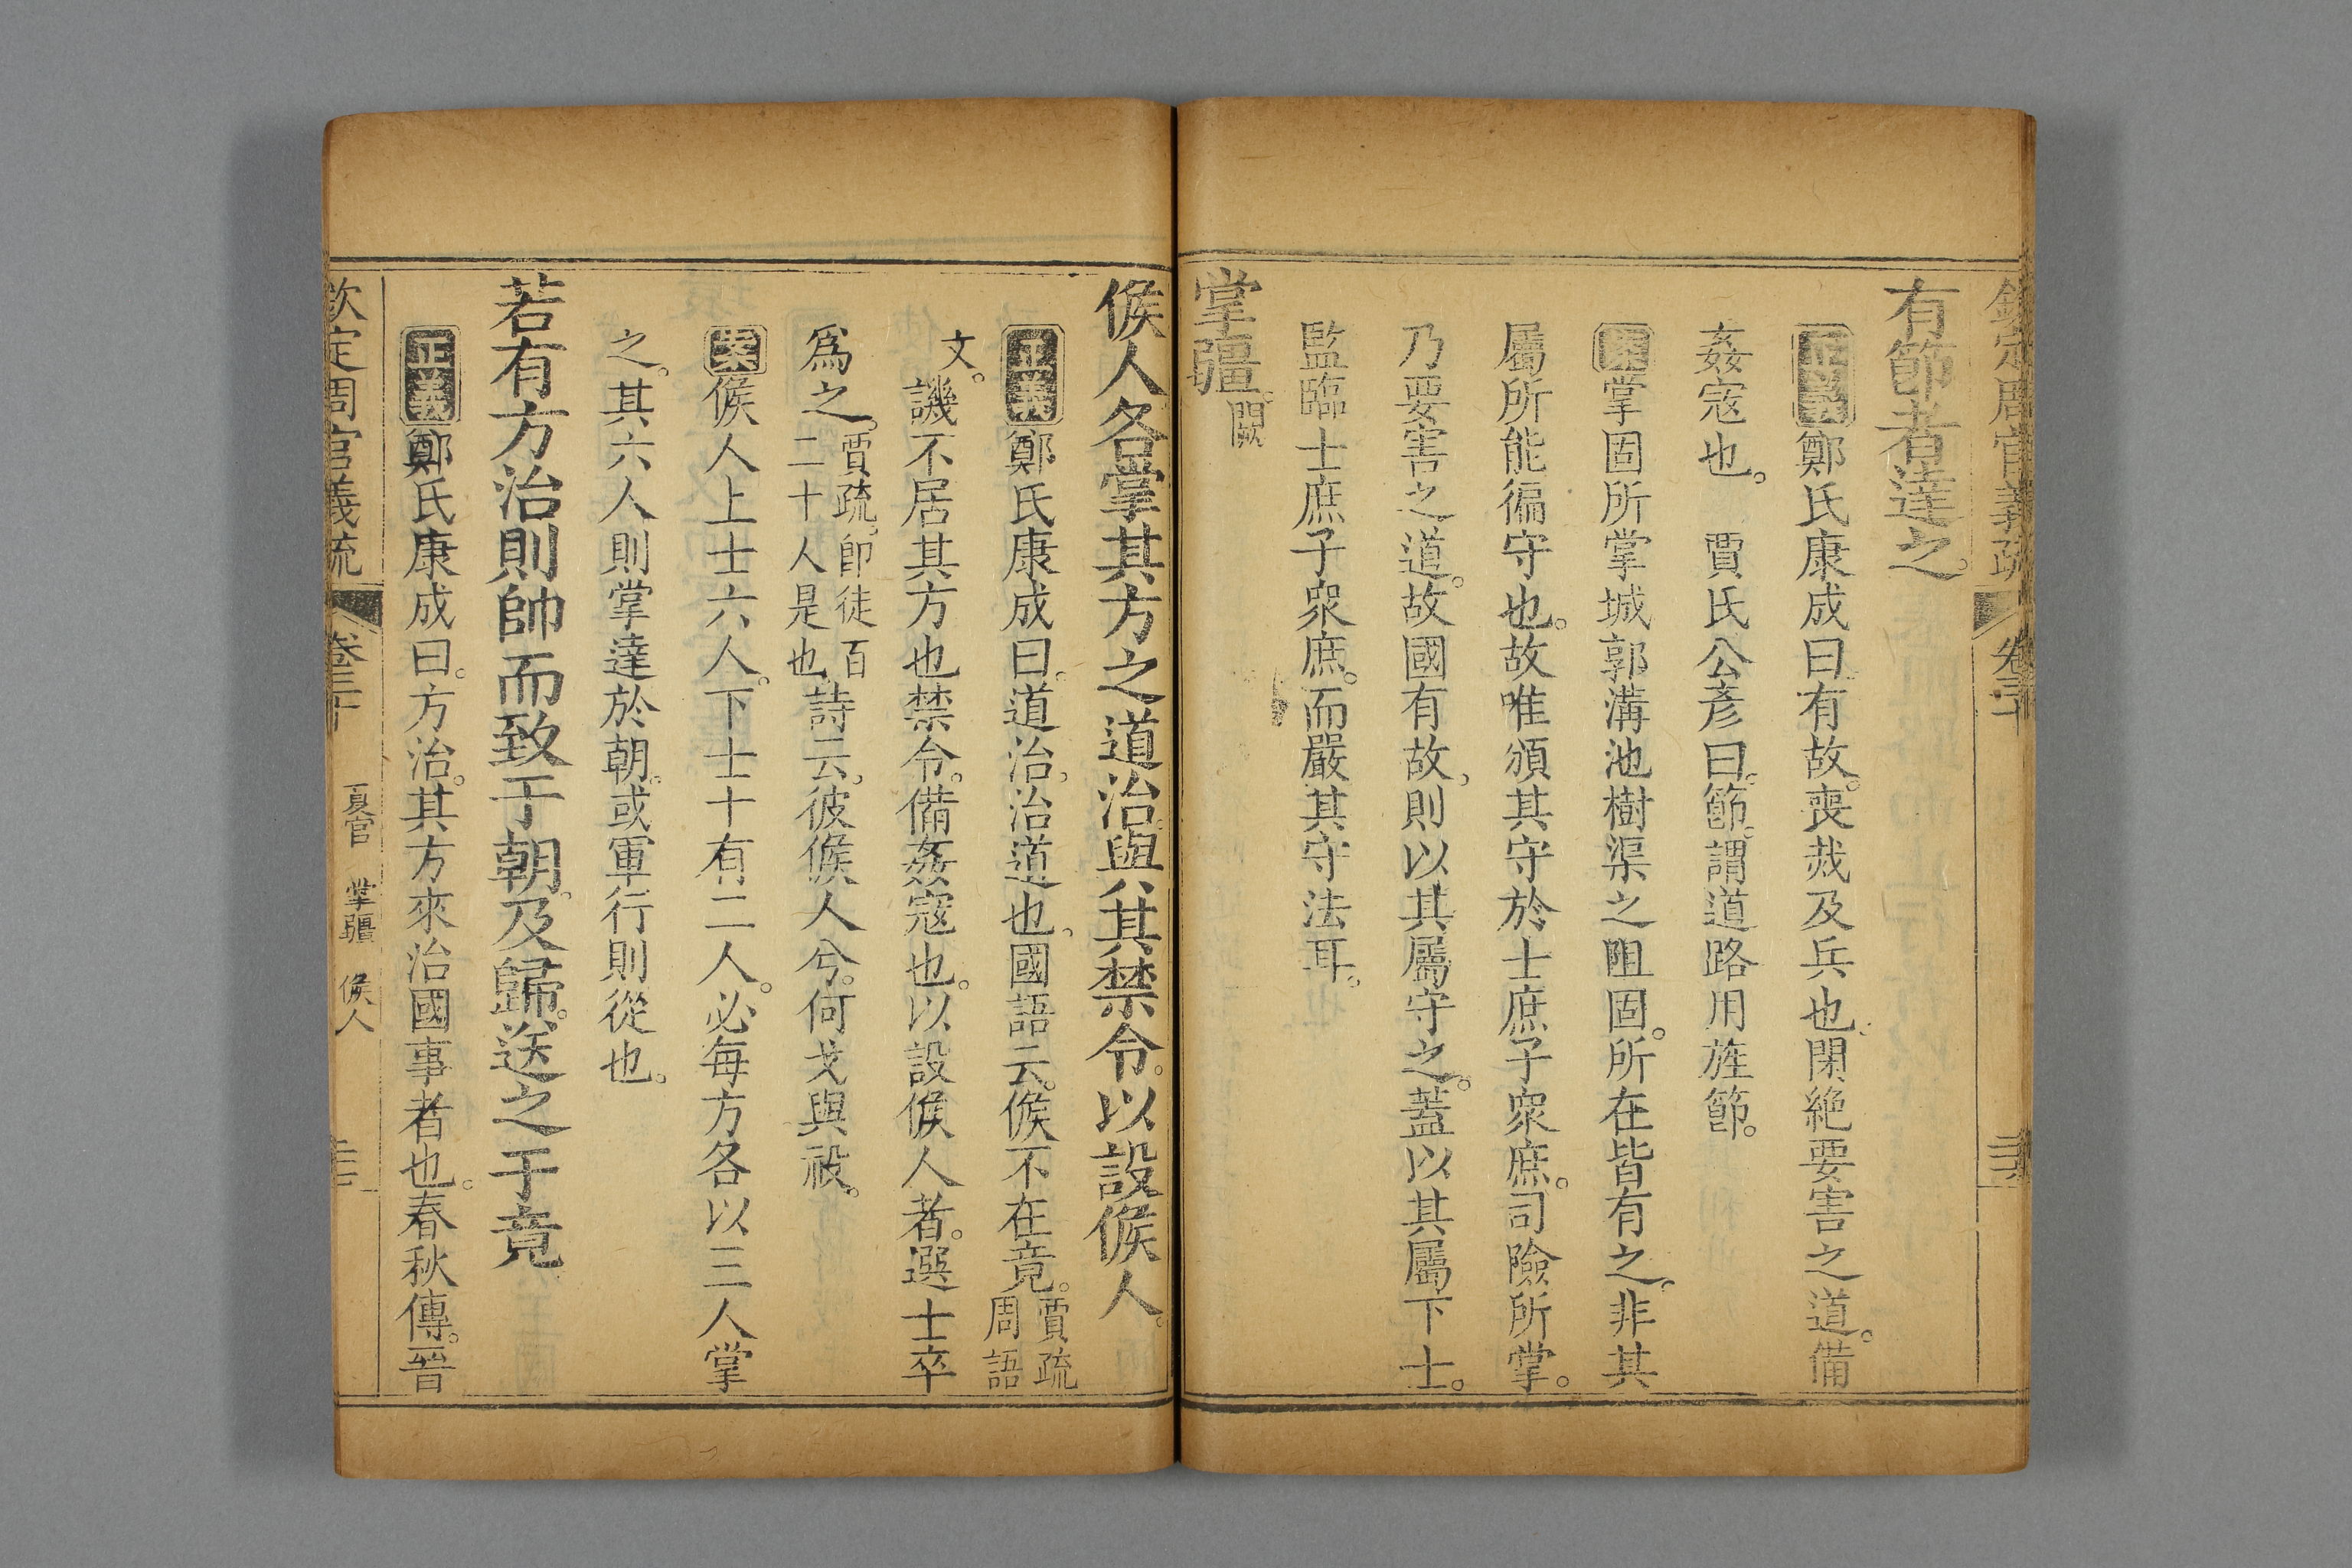 欽定周官義疏 卷三十
有節者達之。
正義鄭氏康成曰。有故。喪烖及兵也。閉絕要害之道。備
姦寇也。 賈氏公彥曰。節。謂道路用旌節。
案掌固所掌城郭溝池樹渠之阻固。所在皆有之。非其
屬所能徧守也。故唯頒其守於士庶子衆庶。司險所掌。
乃要害之道。故國有故。則以其屬守之。蓋以其屬下士。
監臨士庶子衆庶。而嚴其守法耳。
掌疆。闕
候人各掌其方之道治與其禁令。以設候人。
正義鄭氏康成曰。道治。治道也。國語云。候不在竟。賈疏周語
文。譏不居其方也禁令。備姦寇也。以設候人者。選士卒
爲之。賈疏。卽徒百二十人是也。詩云。彼候人兮。何戈與祋。
案候人上士六人。下士十有二人。必每方各以三人掌
之。其六人則掌達於朝。或軍行則從也。
若有方治則帥而致于朝。及歸。送之于竟
正義鄭氏康成曰。方治。其方來治國事者也。春秋傳。晉
欽定周官義疏 卷三十 夏官 掌疆 候人